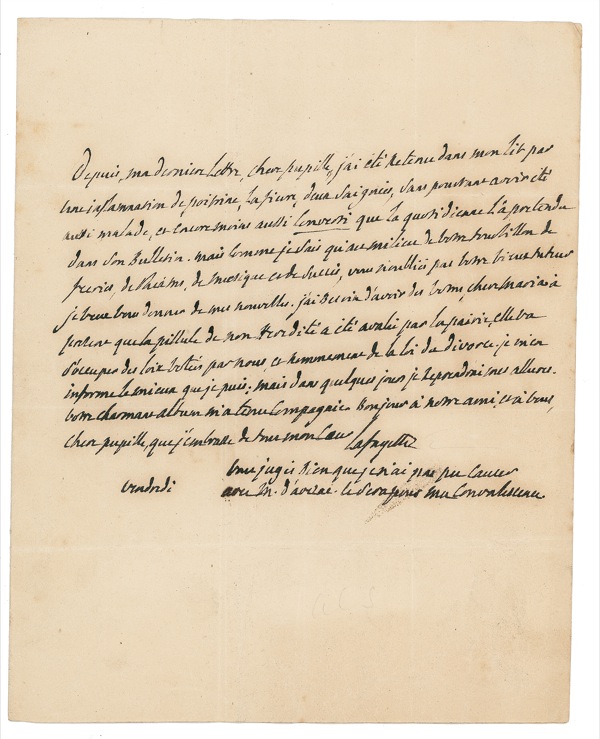 Depuis, ma derniere Lettre, chere pupille, j'ai été Retenu dans mon lit par
une inflammation de poitrine, la fievre, deux Saignées, Sans pourtant avoir été
aussi malade, et encore moins aussi converti que la quotidienne l'a pretendu
dans Son Bulletin. mais comme je Sais qu'au milieu de votre tourbillon de
feeries, de Poëmes, de musique et de Succès, vous n'oubliés pas votre vieux tuteur
je veux vous donner de mes nouvelles. j'ai Besoin d'avoir des votres, chere maria; à
present que la pillule de non heredité a été avalée par la pairie, elle va
s'occuper des loix votées par nous, et nommement de la loi du divorce. je m'en
informe le mieux que je puis. mais dans quelques jours je Reprendrai mes allures.
votre charmant album m'a tenu Compagnie. Bonjour à notre ami, et à vous,
chere pupille, que j'embrasse de tout mon Cœur
Lafayette
vous jugés Bien que je n'ai pas pu Causer
vendredi
avec M. d' ce Sera pour ma Convalescence